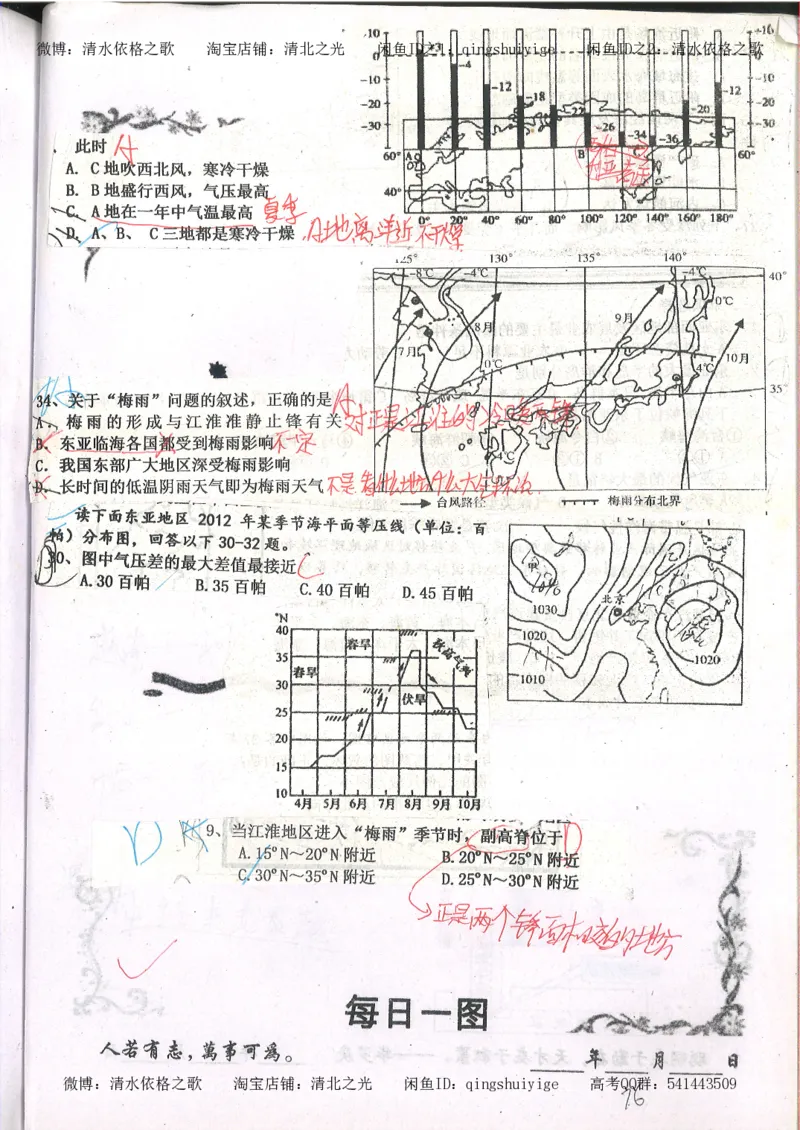 微博：清水依格之歌 淘宝店铺：清北之光 闲鱼ID之1：qingshuiyige 闲鱼ID之2：清水依格之歌
10
0
-10
-20
-30
-4
-12
-18
-22
-26
-34
-36
-20
-12
+10
0
-10
-20
-30
60°
A
B
C
60°
40°
0° 20° 40° 60° 80° 100° 120° 140° 160° 180°
此时 A
A. C地吹西北风，寒冷干燥
B. B地盛行西风，气压最高
C. A地在一年中气温最高 夏季
D. A、B、C三地都是寒冷干燥 A地离洋近不干燥
125° 130° 135° 140°
-8℃ -4℃ -4℃ 40°
0℃
8月 9月
7月 10月
0℃ 4℃
35°
4℃
台风路径 梅雨分布北界
34、关于“梅雨”问题的叙述，正确的是 A
A、梅雨的形成与江淮准静止锋有关
B、东亚临海各国都受到梅雨影响 不定
C. 我国东部广大地区深受梅雨影响
D、长时间的低温阴雨天气即为梅雨天气
读下面东亚地区2012年某季节海平面等压线（单位：百
帕）分布图，回答以下30-32题。
30、图中气压差的最大差值最接近 C
A.30百帕 B.35百帕 C.40百帕 D.45百帕
甲
北京
1030
1020
1010
1020
°N
40
35
30
25
20
15
10
春旱
春旱
秋高气爽
伏旱
4月 5月 6月 7月 8月 9月 10月
9、当江淮地区进入“梅雨”季节时，副高脊位于 D
A.15°N～20°N附近 B.20°N～25°N附近
C.30°N～35°N附近 D.25°N～30°N附近
正是两个锋面相交的地方
每日一图
人若有志，萬事可為。
年 月 日
微博：清水依格之歌 淘宝店铺：清北之光 闲鱼ID：qingshuiyige 高考QQ群：541443509
76